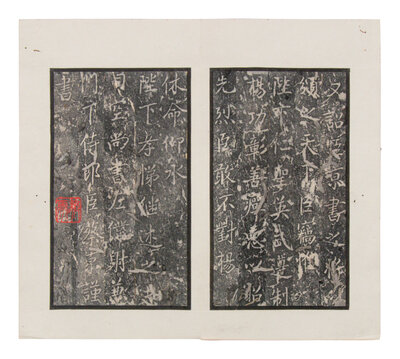 又詔臣京書之將
頒之天下臣竊惟
陛下仁聖英武遵制
揚功彰善癉惡以昭
先烈臣敢不對揚
休命仰承
陛下孝悌繼述之
司空尚書左僕射兼
門下侍郎臣蔡京謹
書